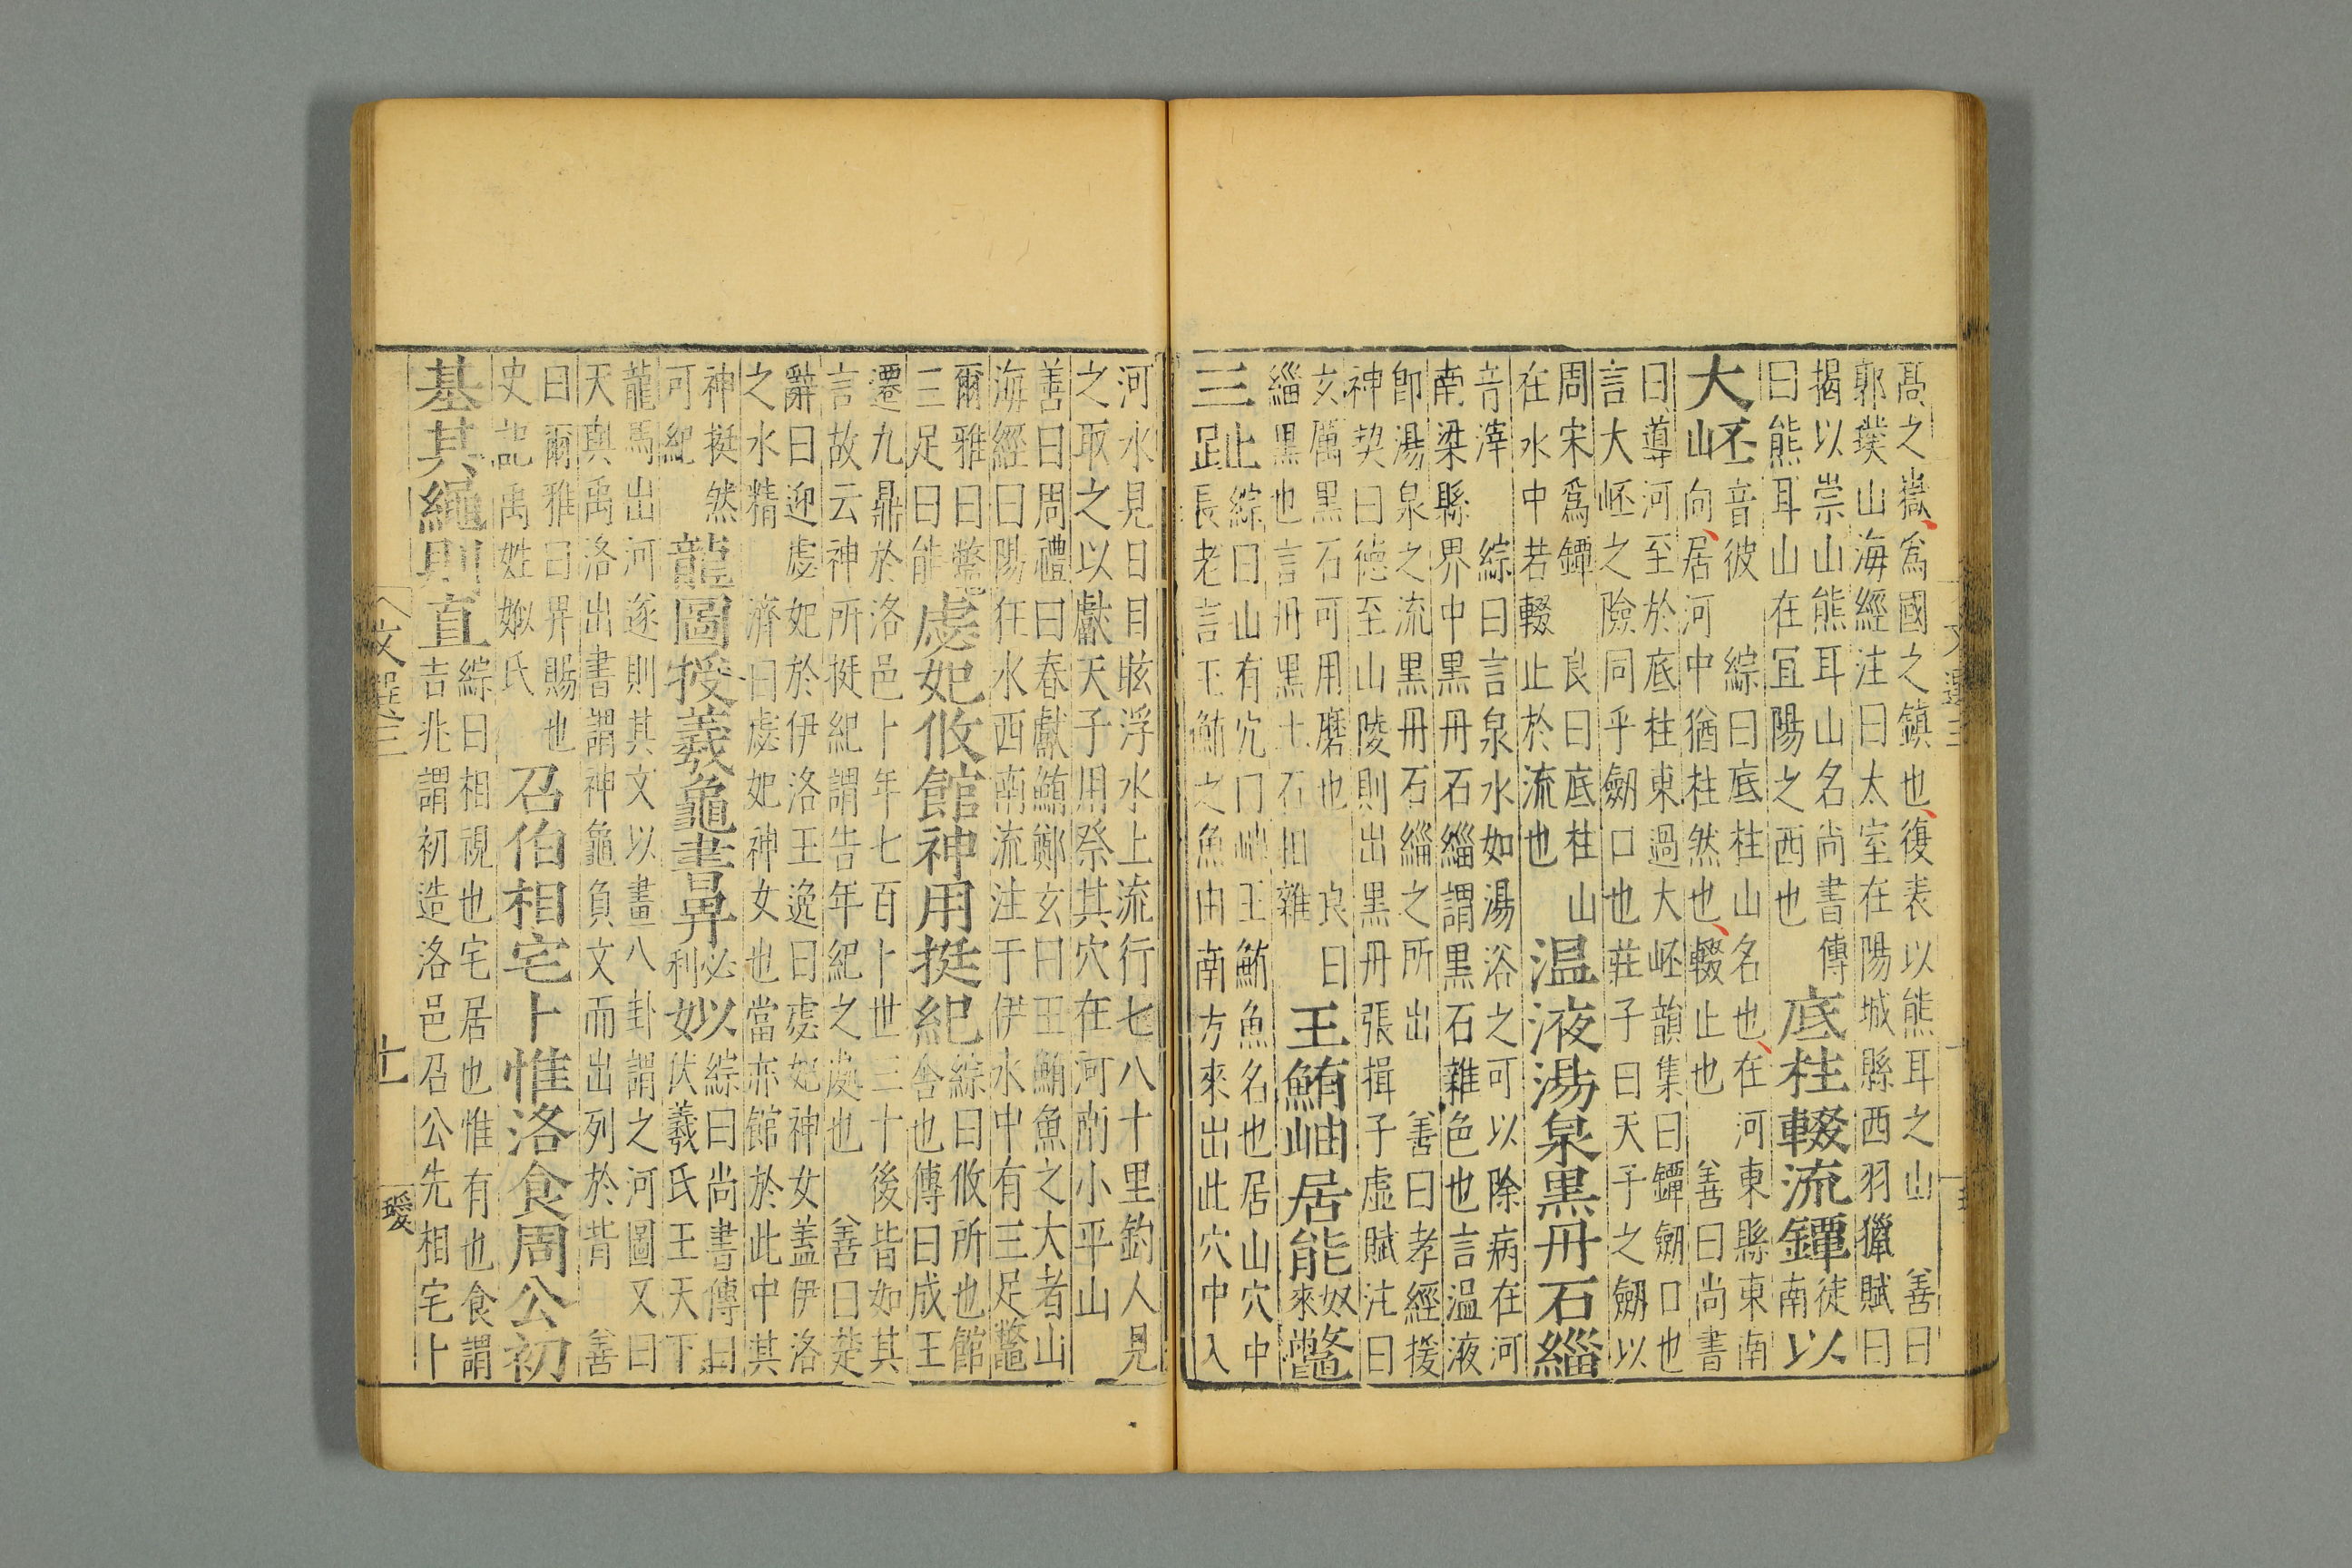 髙之嶽爲國之鎮也復表以熊耳之山 善曰
郭璞山海經注曰太室在陽城縣西羽獵賦曰
揭以崇山熊耳山名尚書傳
曰熊耳山在冝陽之西也
底柱輟流鐔
徒南
以
大岯
音彼 綜曰底柱山名也在河東縣東南
向居河中猶柱然也輟止也 善曰尚書
曰導河至於底柱東過大岯韻集曰鐔劒口也
言大岯之險同乎劒口也莊子曰天子之劒以
周宋爲鐔 良曰底柱山
在水中若輟止於流也
温液湯泉黒丹石緇
音滓 綜曰言泉水如湯浴之可以除病在河
南梁縣界中黒丹石緇謂黒石雜色也言温液
卽湯泉之流黒丹石緇之所出 善曰孝經援
神契曰徳至山陵則出黒丹張揖子虛賦注曰
玄厲黒石可用磨也 良曰
緇黒也言丹黒土石相雜
王鮪岫居能
奴來
鼈
三趾
綜曰山有穴門岫王鮪魚名也居山穴中
長老言王鮪之魚由南方來出此穴中入
河水見日目眩浮水上流行七八十里釣人見
之取之以獻天子用祭其穴在河南小平山
善曰周禮曰春獻鮪鄭玄曰王鮪魚之大者山
海經曰陽狂水西南流注于伊水中有三足鼈
爾雅曰鼈
三足曰能
虙妃攸館神用挺紀
綜曰攸所也館
舍也傳曰成王
遷九鼎於洛邑卜年七百卜世三十後皆如其
言故云神所挺紀謂告年紀之處也 善曰楚
辭曰迎虙妃於伊洛王逸曰虙妃神女蓋伊洛
之水精 濟曰虙妃神女也當亦館於此中其
神挺然
可紀
龍圖授羲龜書畀
必利
姒
綜曰尚書傳曰
伏羲氏王天下
龍馬出河遂則其文以畫八卦謂之河圖又曰
天與禹洛出書謂神龜負文而出列於背 善
曰爾雅曰畀賜也
史記禹姓姒氏
召伯相宅卜惟洛食周公初
基其繩則直
綜曰相視也宅居也惟有也食謂
吉兆謂初造洛邑召公先相宅卜
文選三